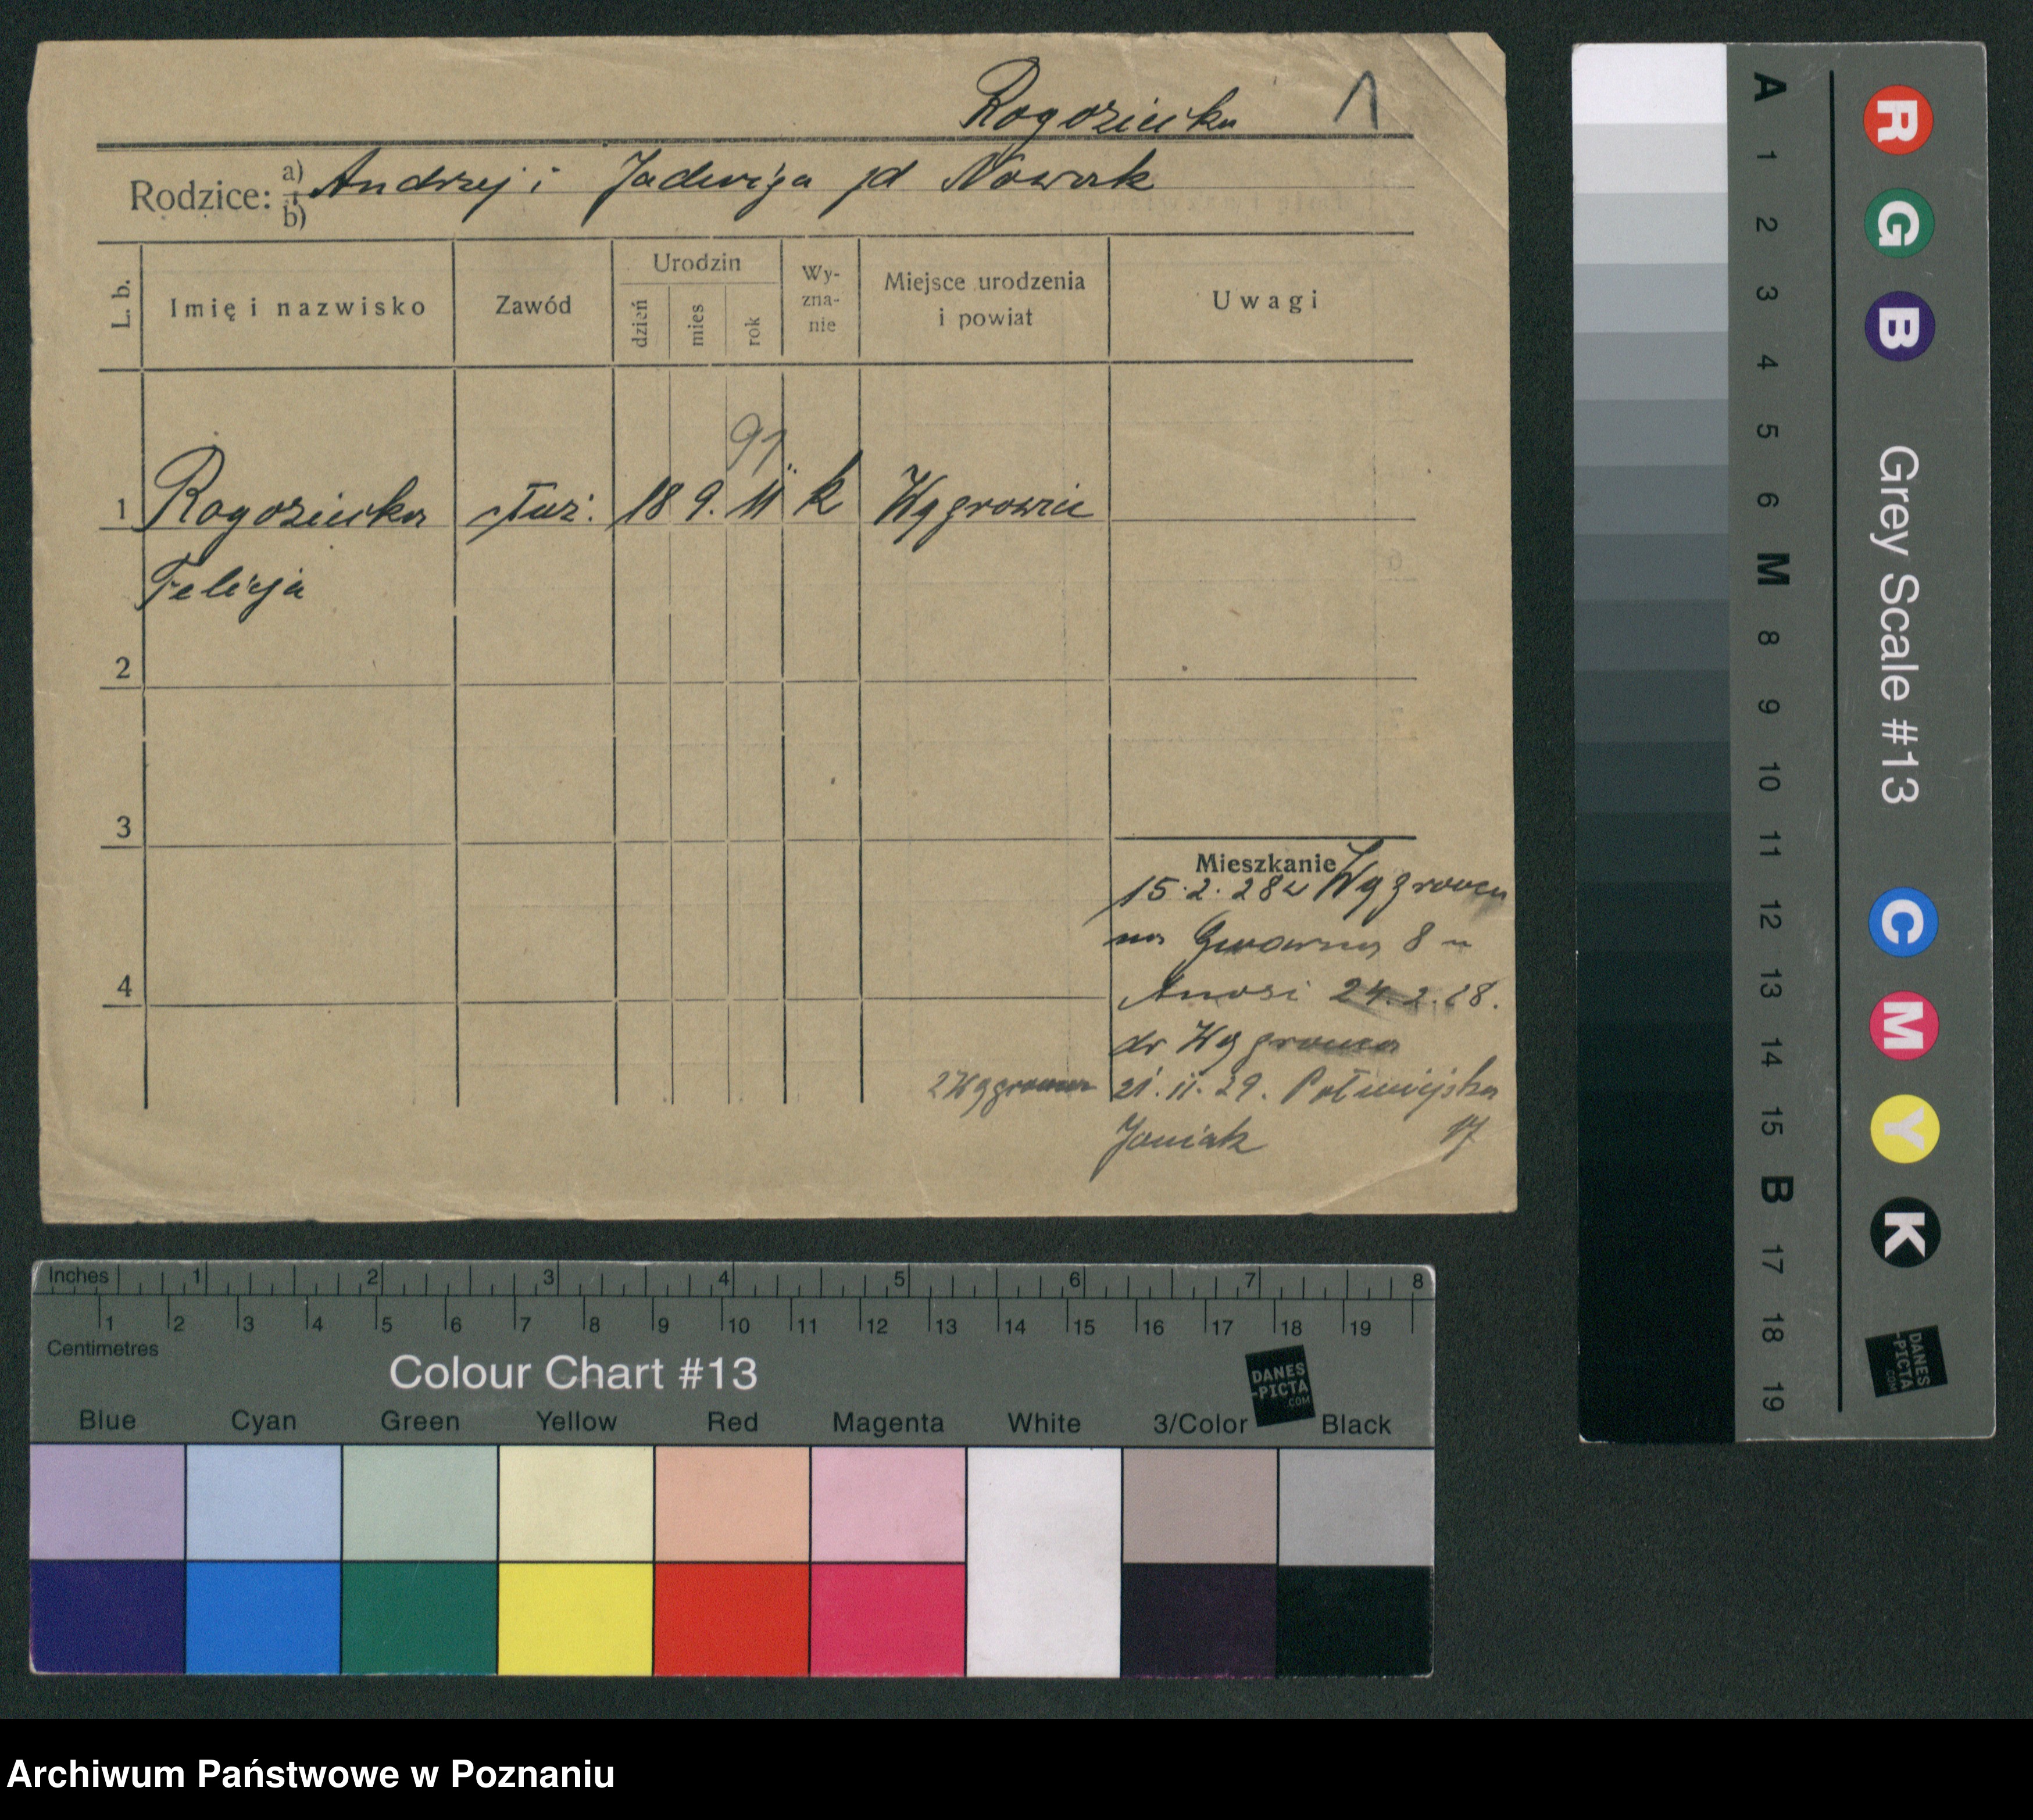 Rogozińska 1
Rodzice: a) i b) Andrzej i Jadwiga pd Nowak
L. b. Imię i nazwisko Zawód Urodzin dzień mies rok Wy-zna-nie Miejsce urodzenia i powiat Uwagi
91
1 Rogozińska służ. 18 9. 11 k Wągrowiec
Felicja
2
3
Mieszkanie
15.2.28 z Wągrowca
na Gwarną 8
4
24.2.28.
do Wągrowca
z Wągrowca 21.11.29. Półwiejska
Janiak 17
Inches 1 2 3 4 5 6 7 8
1 2 3 4 5 6 7 8 9 10 11 12 13 14 15 16 17 18 19
Centimetres
Colour Chart #13
DANES-PICTA.COM
Blue Cyan Green Yellow Red Magenta White 3/Color Black
A 1 2 3 4 5 6 M 8 9 10 11 12 13 14 15 B 17 18 19
R G B Grey Scale #13 C M Y K
DANES-PICTA.COM
Archiwum Państwowe w Poznaniu